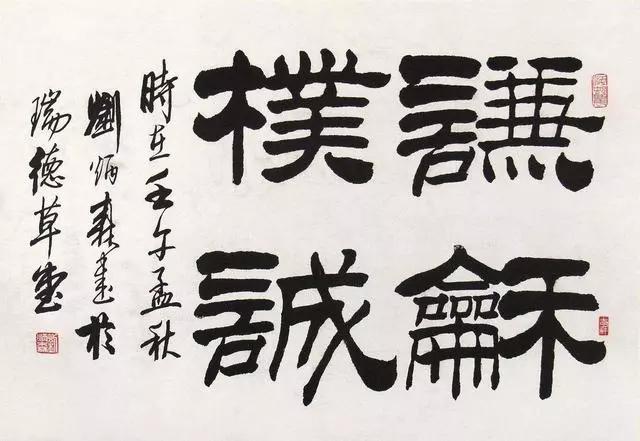 謙龢
樸誠
時在壬午孟秋
劉炳森書於
瑞德草堂